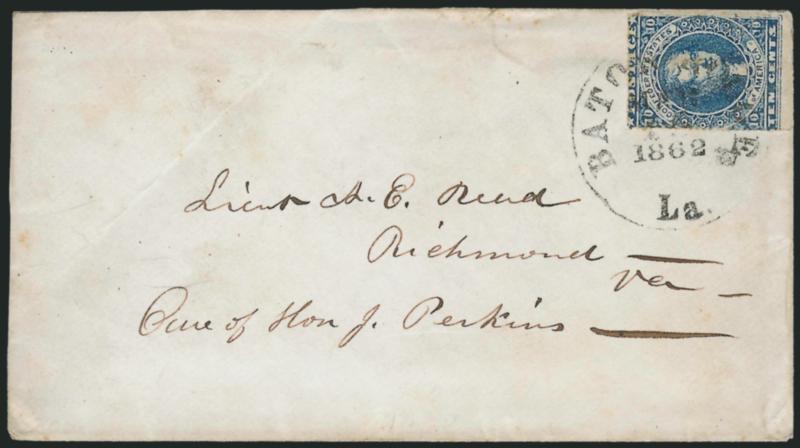 TEN CENTS
CONFEDERATE STATES
OF AMERICA
10
BATO
1862
La.
Lieut A. E. Reed
Richmond
Va
Care of Hon J. Perkins